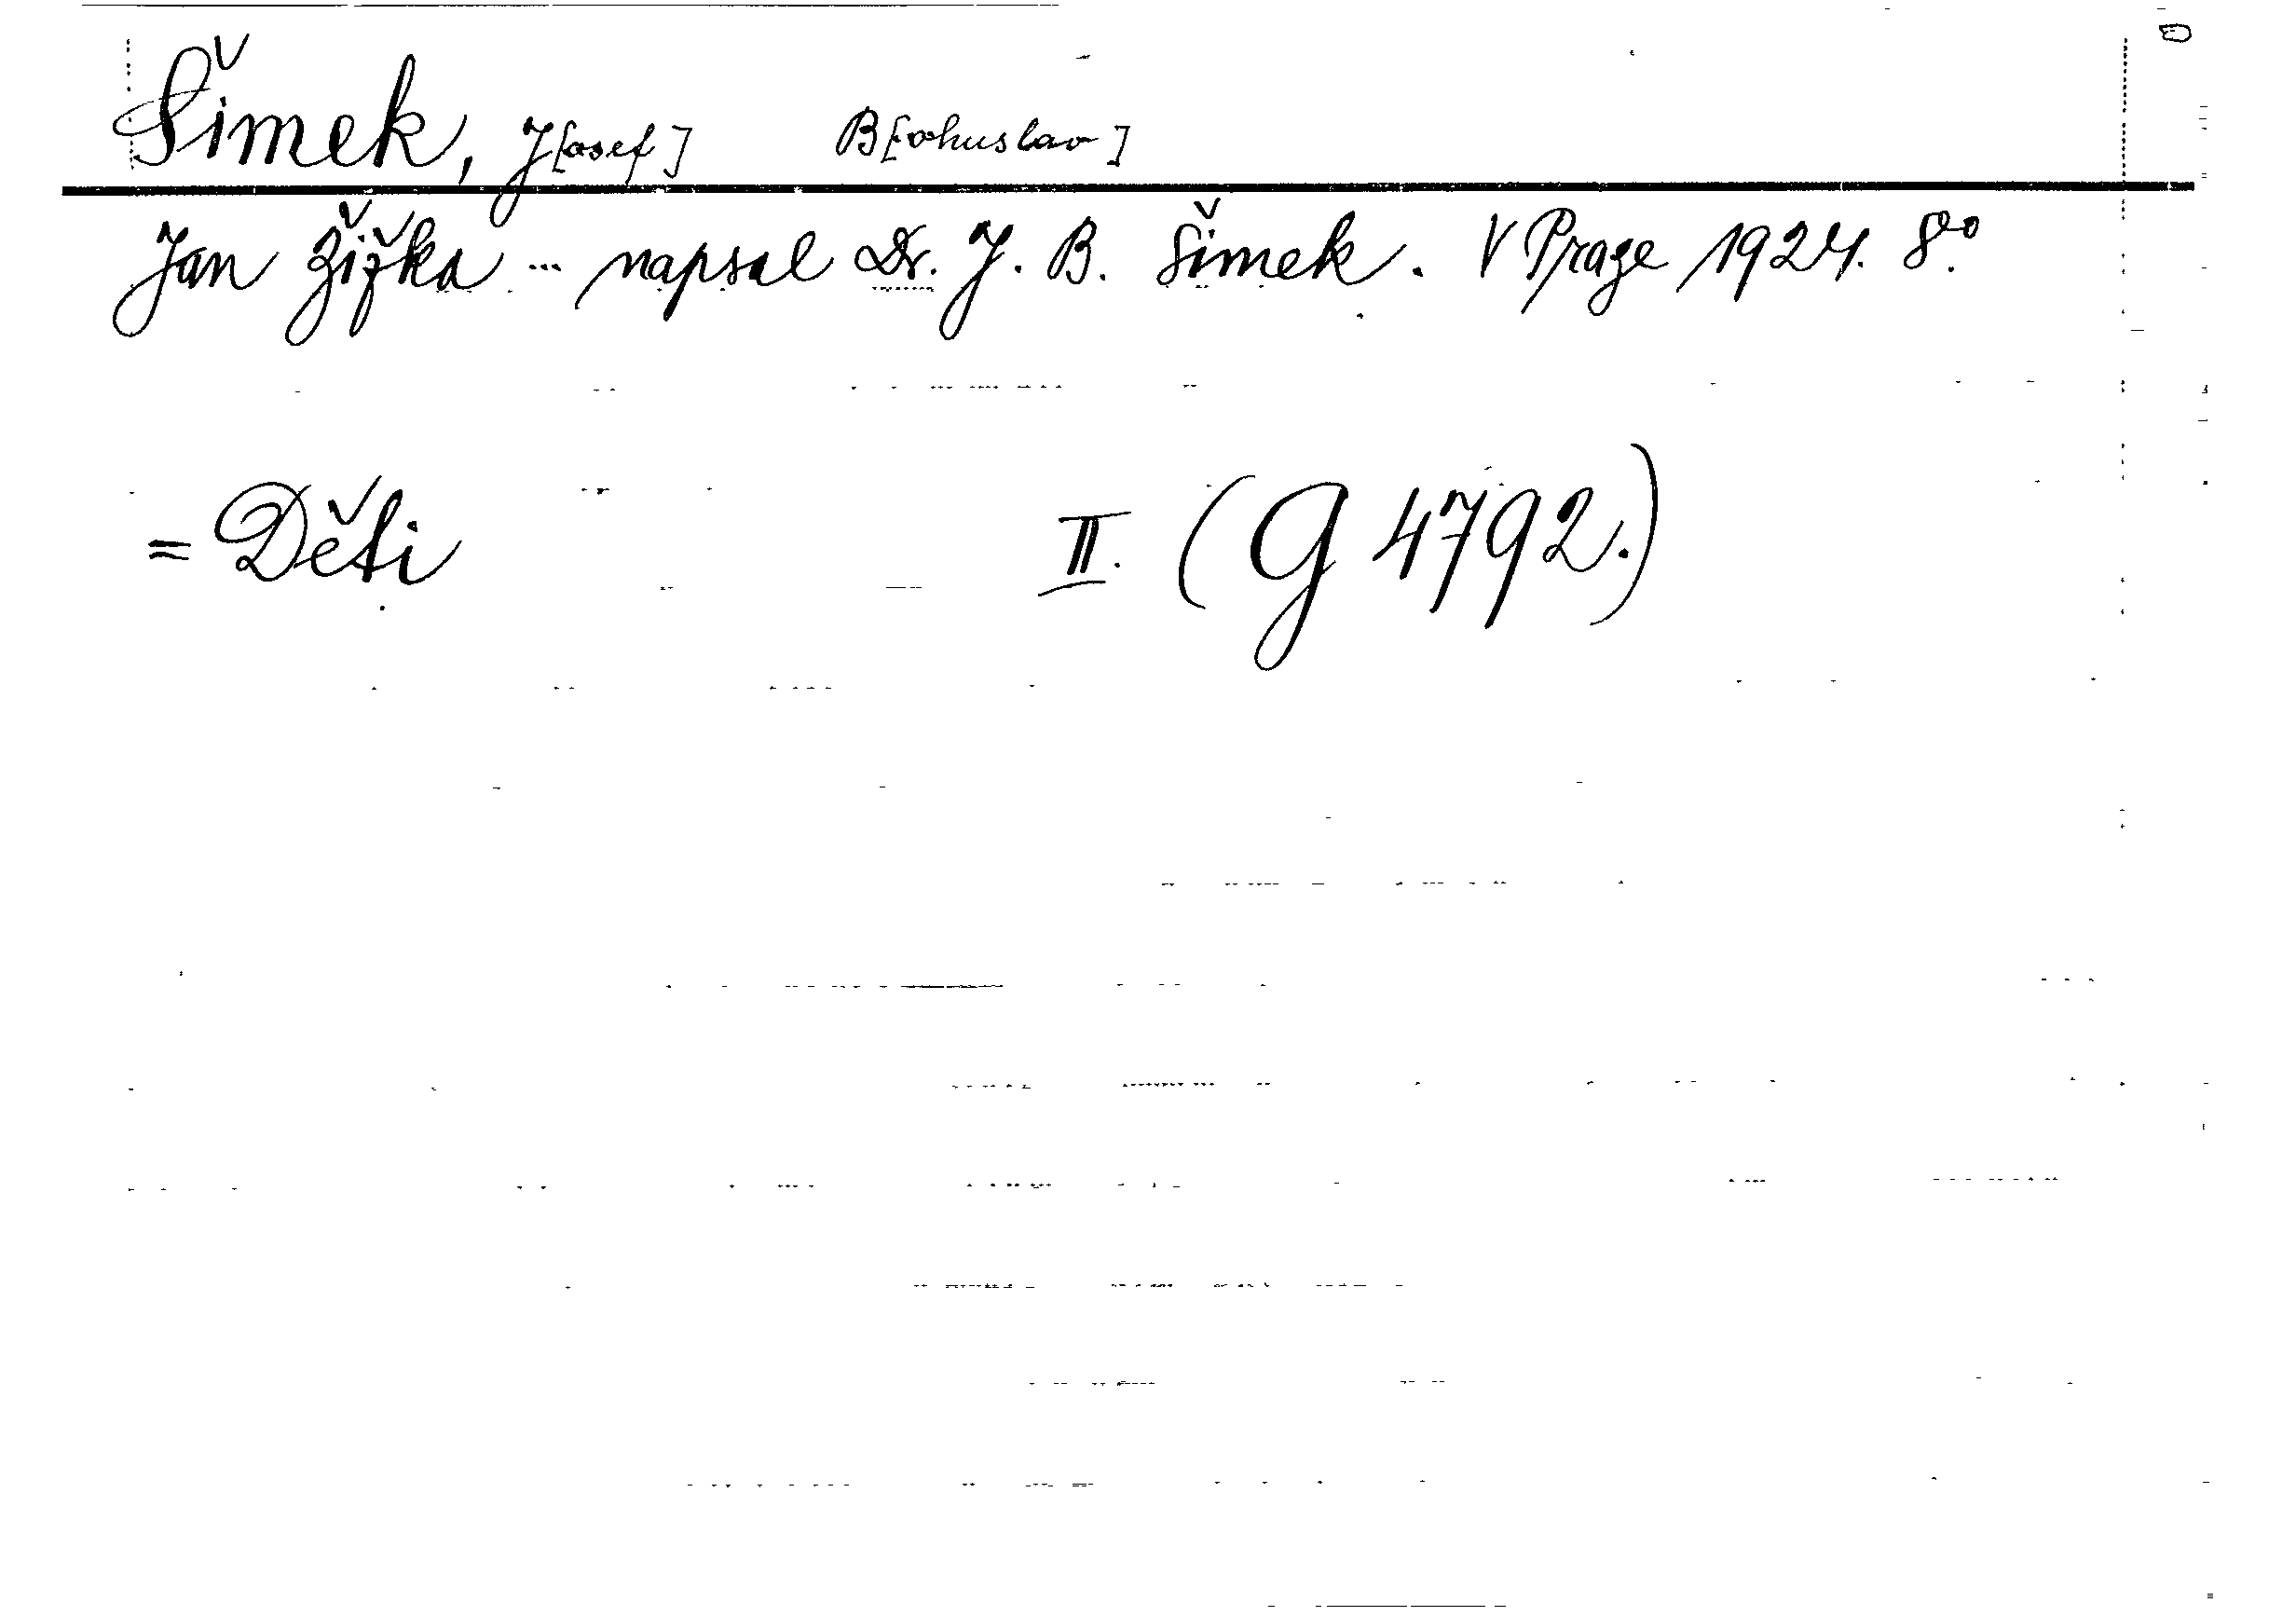 Šimek, J[osef] B[ohuslav]
Jan Žižka ... napsal Dr. J. B. Šimek. V Praze 1924. 8vo.
= Děti II. (G 4792.)